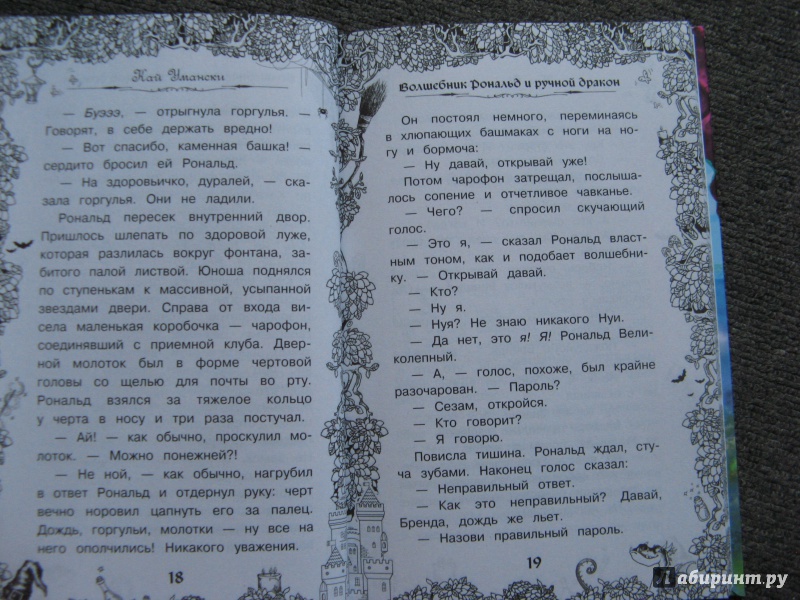 Кай Умански
— Буэээ, — отрыгнула горгулья. —
Говорят, в себе держать вредно!
— Вот спасибо, каменная башка! —
сердито бросил ей Рональд.
— На здоровьичко, дуралей, — ска-
зала горгулья. Они не ладили.
Рональд пересек внутренний двор.
Пришлось шлепать по здоровой луже,
которая разлилась вокруг фонтана, за-
битого палой листвой. Юноша поднялся
по ступенькам к массивной, усыпанной
звездами двери. Справа от входа ви-
села маленькая коробочка — чарофон,
соединявший с приемной клуба. Двер-
ной молоток был в форме чертовой
головы со щелью для почты во рту.
Рональд взялся за тяжелое кольцо
у черта в носу и три раза постучал.
— Ай! — как обычно, проскулил мо-
лоток. — Можно понежней?!
— Не ной, — как обычно, нагрубил
в ответ Рональд и отдернул руку: черт
вечно норовил цапнуть его за палец.
Дождь, горгульи, молотки — ну все на
него ополчились! Никакого уважения.
18
Волшебник Рональд и ручной дракон
Он постоял немного, переминаясь
в хлюпающих башмаках с ноги на но-
гу и бормоча:
— Ну давай, открывай уже!
Потом чарофон затрещал, послыша-
лось сопение и отчетливое чавканье.
— Чего? — спросил скучающий
голос.
— Это я, — сказал Рональд власт-
ным тоном, как и подобает волшебни-
ку. — Открывай давай.
— Кто?
— Ну я.
— Нуя? Не знаю никакого Нуи.
— Да нет, это я! Я! Рональд Вели-
колепный.
— А, — голос, похоже, был крайне
разочарован. — Пароль?
— Сезам, откройся.
— Кто говорит?
— Я говорю.
Повисла тишина. Рональд ждал, сту-
ча зубами. Наконец голос сказал:
— Неправильный ответ.
— Как это неправильный? Давай,
Бренда, дождь же льет.
— Назови правильный пароль.
19
Лабиринт.ру